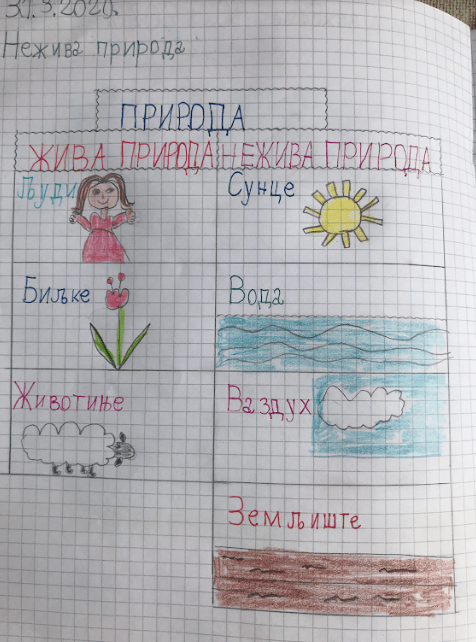 31.3.2020.
Нежива природа
ПРИРОДА
ЖИВА ПРИРОДА НЕЖИВА ПРИРОДА
Људи Сунце
Биљке Вода
Животиње Ваздух
Земљиште